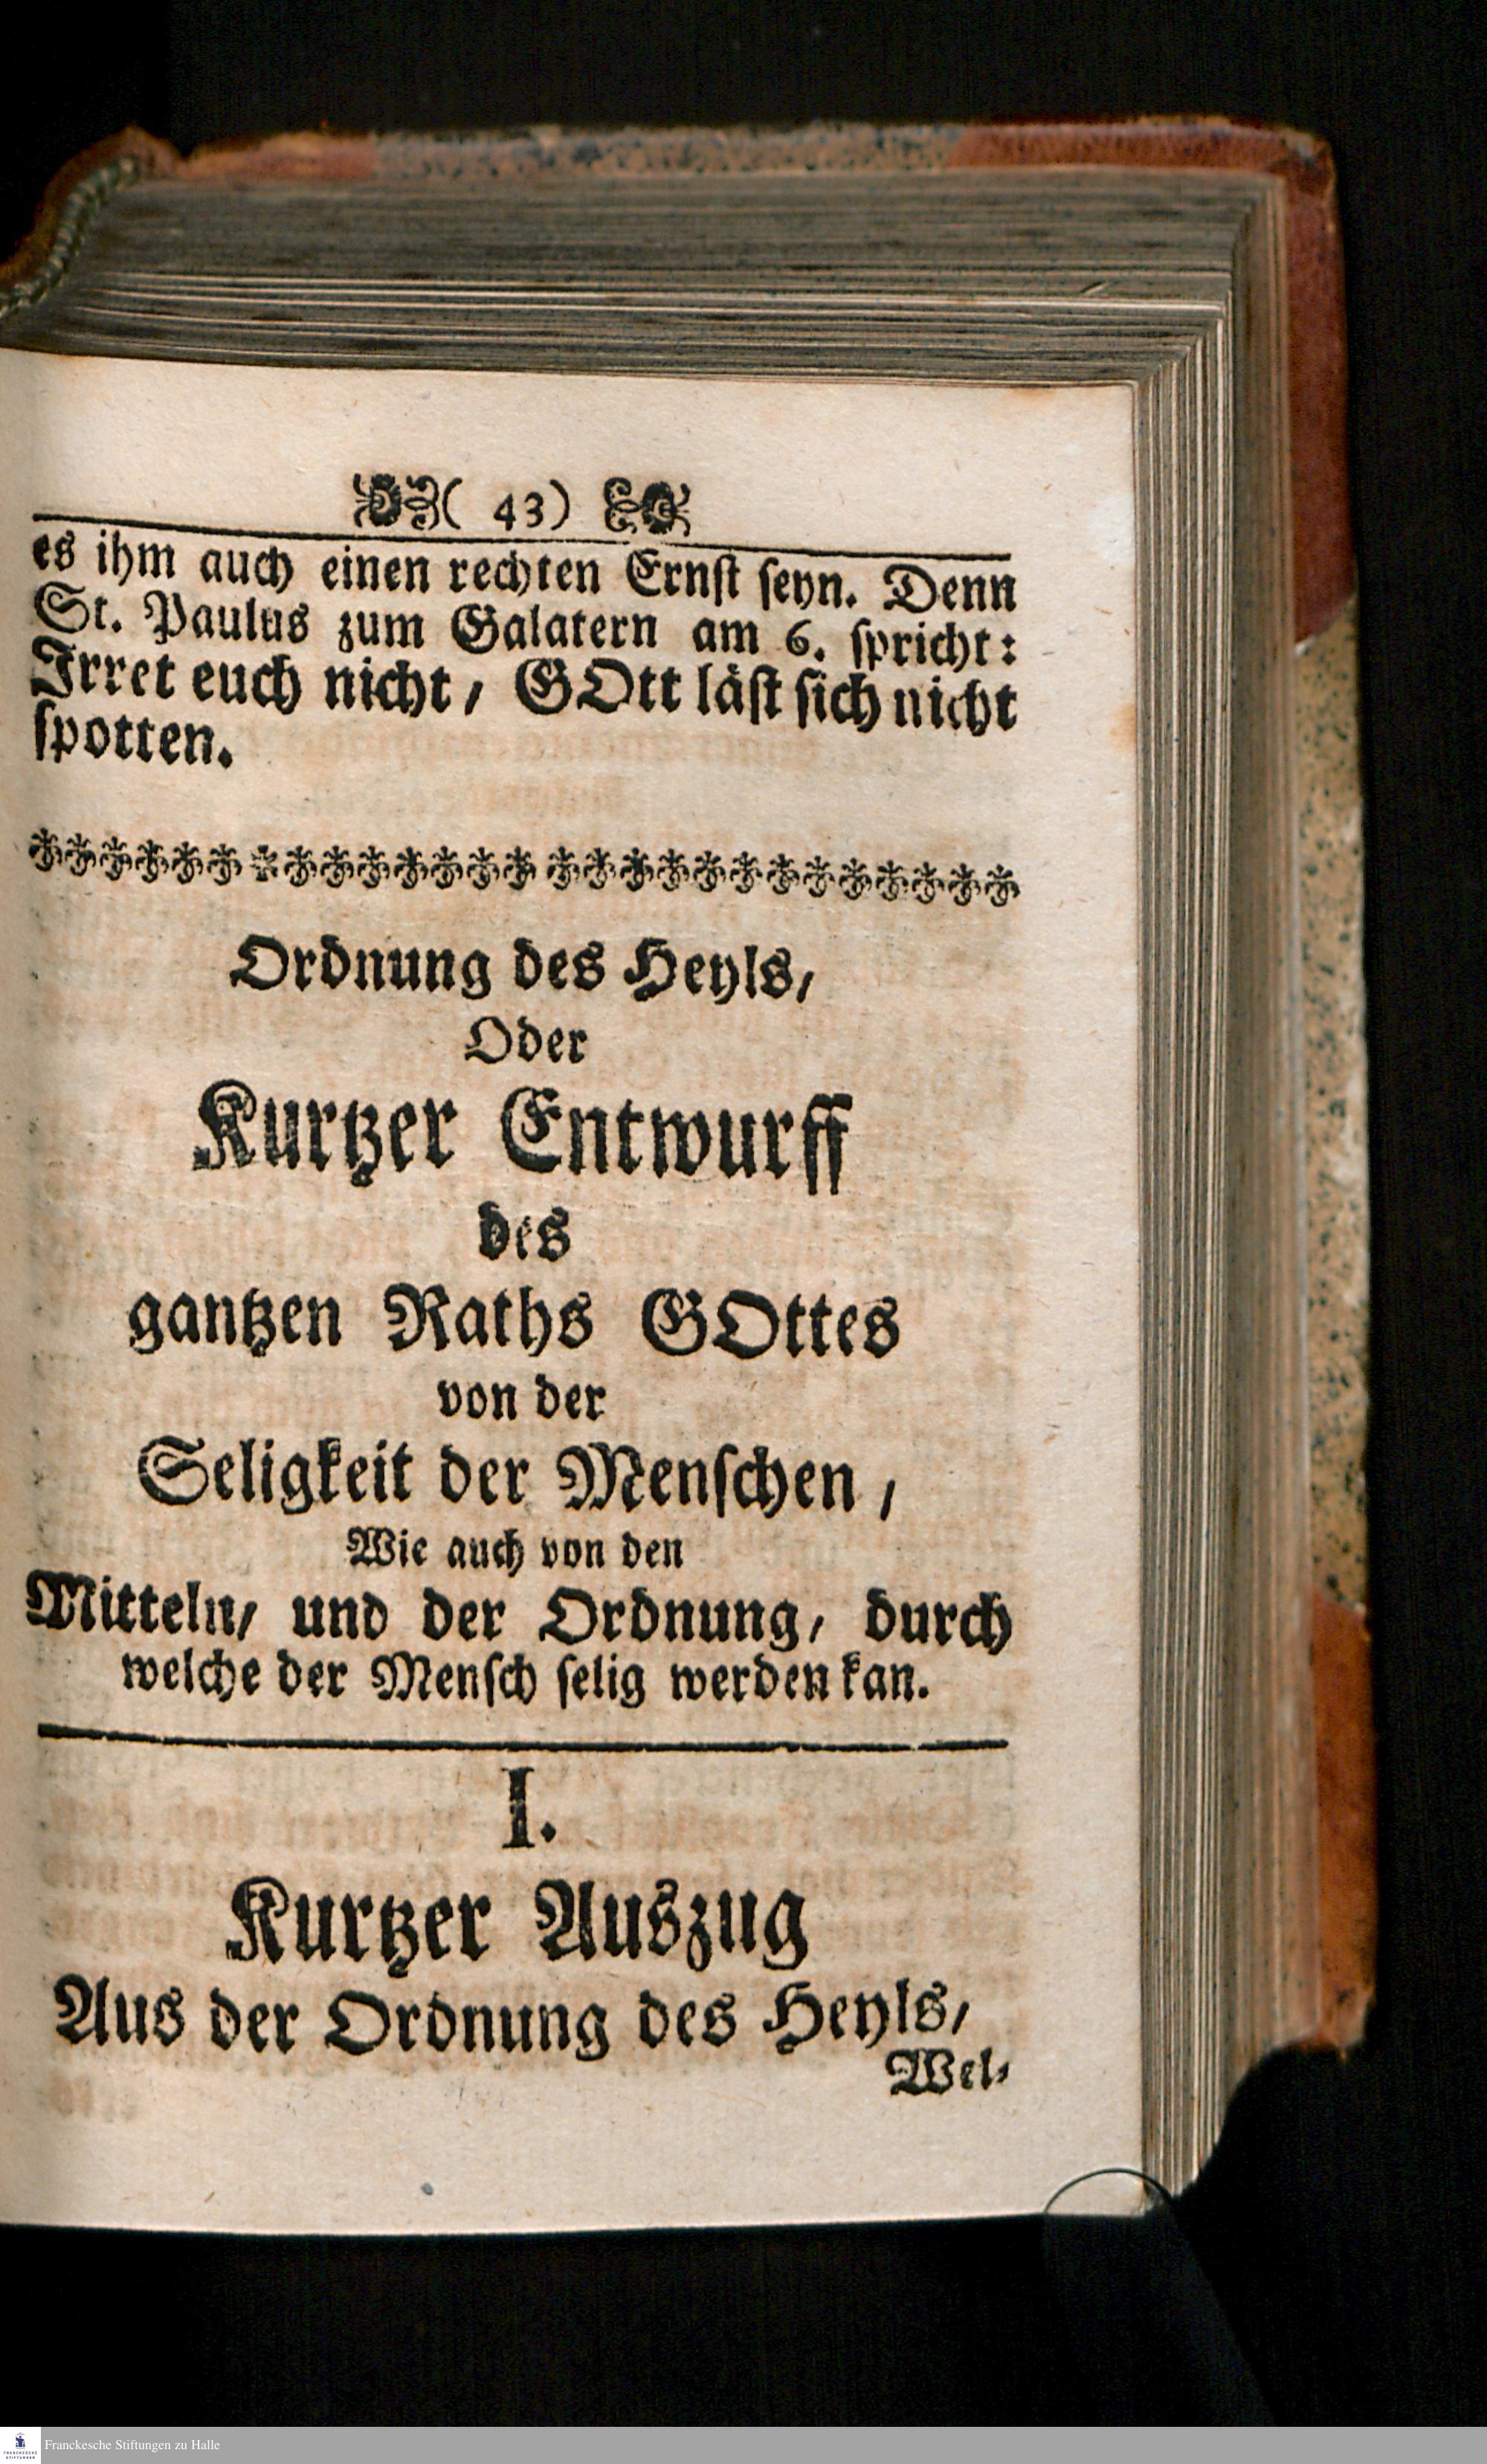 ( 43)
es ihm auch einen rechten Ernst seyn. Denn
St. Paulus zum Galatern am 6. spricht:
Irret euch nicht, GOtt läst sich nicht
spotten.
Ordnung des Heyls,
Oder
Kurtzer Entwurff
des
gantzen Raths GOttes
von der
Seligkeit der Menschen,
Wie auch von den
Mitteln, und der Ordnung, durch
welche der Mensch selig werden kan.
I.
Kurtzer Auszug
Aus der Ordnung des Heyls,
Wel-
Franckesche Stiftungen zu Halle